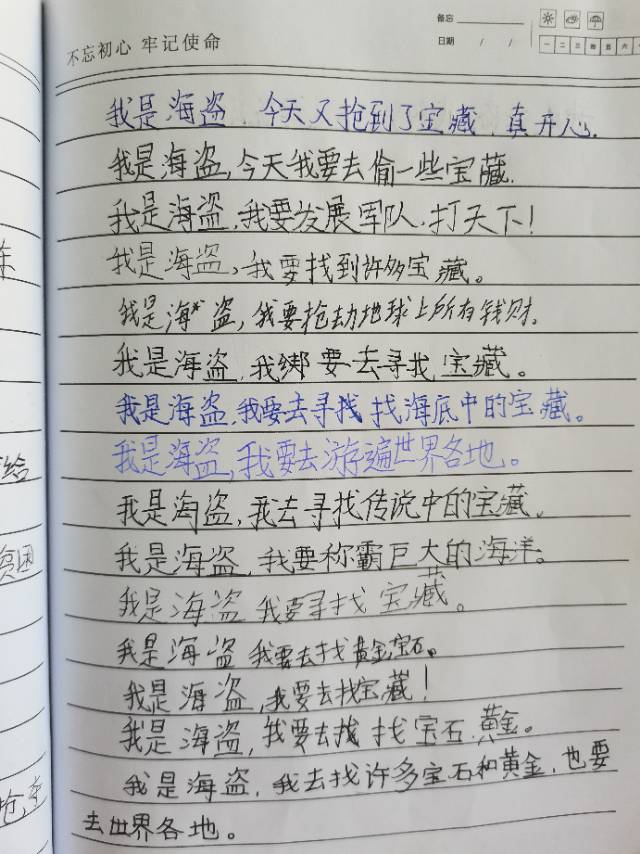 不忘初心 牢记使命
备忘
日期 / /
一 二 三 四 五 六
我是海盗，今天又抢到了宝藏，真开心.
我是海盗,今天我要去偷一些宝藏.
我是海盗,我要发展军队.打天下!
我是海盗,我要找到许多宝藏。
我是海盗,我要抢劫地球上所有钱财。
我是海盗,我绑要去寻找宝藏。
我是海盗,我要去寻找找海底中的宝藏。
我是海盗,我要去游遍世界各地。
我是海盗,我去寻找传说中的宝藏。
我是海盗,我要称霸巨大的海洋。
我是海盗 我要寻找宝藏。
我是海盗 我要去找黄金宝石。
我是海盗,我要去找宝藏!
我是海盗,我要去找找宝石.黄金。
我是海盗,我去找许多宝石和黄金,也要
去世界各地。
给